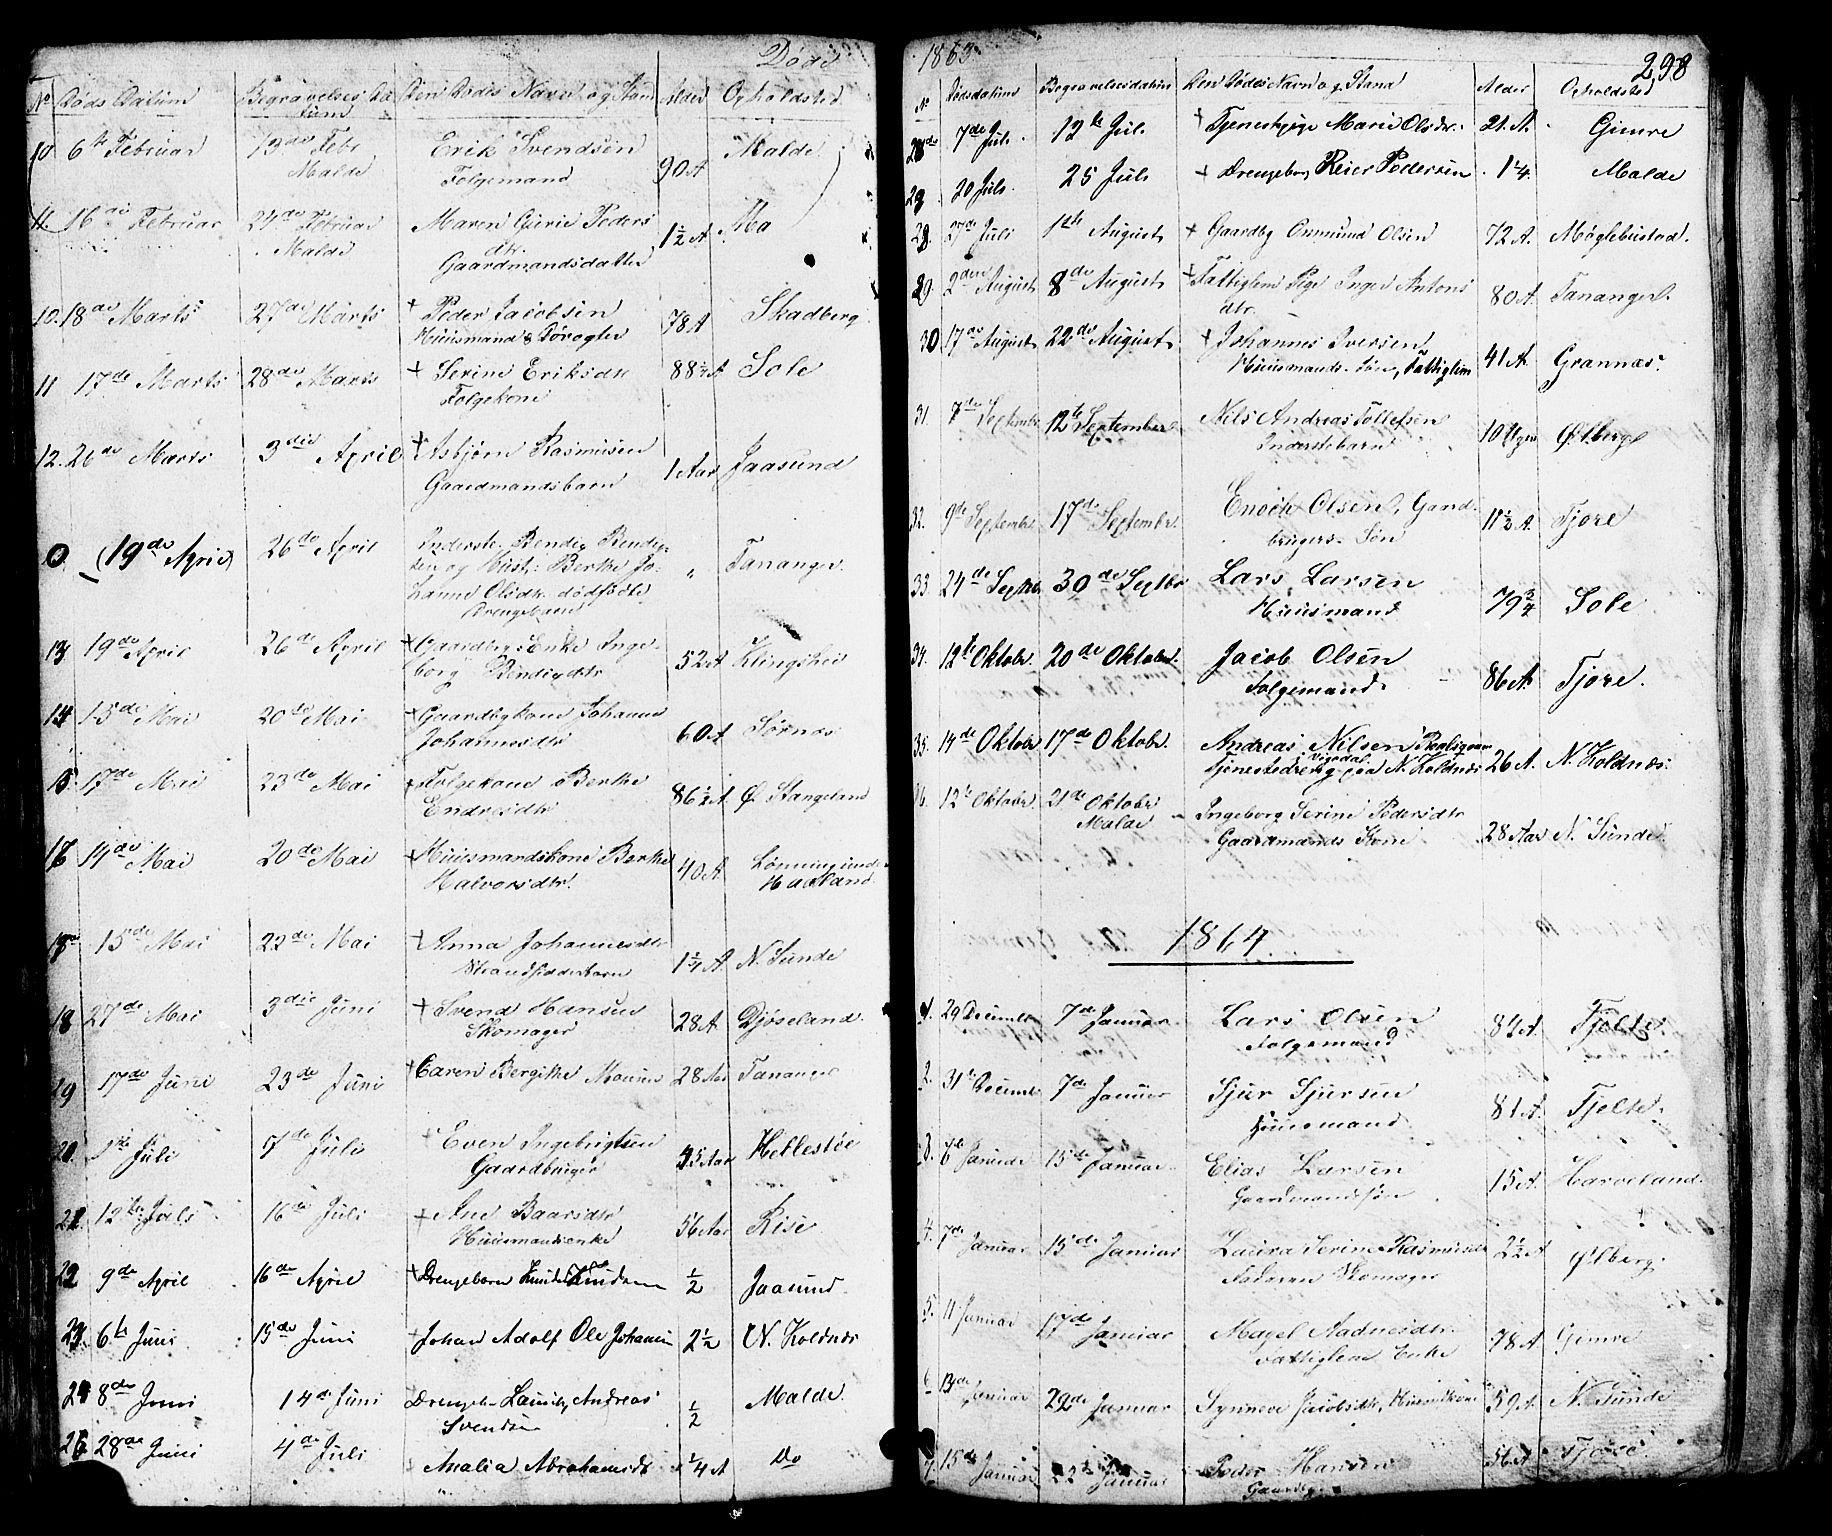 Døde
No Døds Datum Begravelses Da- Den Dødes Navn og Stan Alder Opholdsted
tum
10 6te Februar 13de Febr Erik Svendsen 90 A Malde
Malde Folgemand
11. 16de Februar 24de Februar Maren Gurie Peders 1½ A Ma
Malde dtr.
Gaardmandsdatter
10. 18de Marts 27de Marts + Peder Jacobsen 78 A Skadberg
Huusmand &
11 17de Marts 28de Marts + Serine Eriksdtr 88½ A Sole
Folgekone
12. 26de Marts 3die April + Asbjørn Rasmusen 1 Aar Jaasund
Gaardmandsbarn
0 (19de April) 26de April Inderste Bendig Bendig- " Tananger
sen og Hust: Berthe Jo-
hanne Olsdtr. dødfødte
Drengebarn
13 19de April 26de April + Gaardbr: Enke Inge- 52 A Klingshei
borg Bendigdtr
14 15de Mai 20de Mai + Gaardbgkone Johanne 60 A Sørnæs
Johannesdtr
15. 17de Mai 23de Mai + Folgekone Berthe 86½ A Ø. Stangeland
Endresdtr
16 14de Mai 20de Mai + Huusmandskone Berthe 40 A Lønning und:
Halvorsdtr. Haaland
17 15de Mai 22de Mai + Anna Johannesdtr 1¼ A N. Sunde
Strandsidderbarn
18 27de Mai 3die Juni + Svend Hansen 28 A Djøseland
Skomager
19 17de Juni 23de Juni + Caren Bergithe 28 Aar Tananger
20. 1ste Juli 7de Juli + Even Ingebrigtsen 45 Aar Hellestøe
Gaardbruger
21 12te Juli 16de Juli + Ane Baarsdtr 56 Aar Risе
Huusmandsenke
22 9de April 16de April + Drengebarn Knud Knudsen ½ Jaasund
23. 6te Juni 15de Juni Johan Adolf Ole Johannes 2½ N. Koldnæs
24 8de Juni 14de Juni Drengeb. Andreas ½ Malde
Svendsen
25 28de Juni 4de Juli + Analia Abrahamsdtr ¼ A Do
1863 298
No Dødsdatum Begravelsesdatum Den Dødes Navn og Stand Alder Opholdsted
26 7de Juli 12te Juli + Tjenestepige Marie Olsdtr. 21. A. Gimre
20 Juli 25 Juli + Drengebarn Reier Pedersen 1¼. Malde
28. 27de Juli 1ste August + Gaardbg Osmund Olsen 72 A. Møglebustad.
29 2den August 8de August + Fattiglem Pige Inger Antons 80 A. Tananger.
dtr.
30 17de August 22de August + Johannes Iversen 41 A. Grannæs.
Huusmands Søn, Fattiglem
31. 7de Septembr 12te September Nils Andreas Tollefsen 10 Uger Ølberg
Inderstebarn
32. 9de Septembr 17de Septembr. Enoch Olsen, Gaard- 11½ A. Tjore
brugers Søn
33. 24de Septbr 30de Septbr Lars Larsen 79¾ Sole
Huusmand
34. 12te Oktobr. 20de Oktobr. Jacob Olsen 86 A Tjore.
Folgemand.
35. 14de Oktobr 17de Oktobr. Andreas Nilsen 26 A. N. Koldnæs.
Tjenestedreng paa N. Koldnæs
36. 12te Oktobr 21de Oktobr Ingeborg Serine Pedersdtr 28 Aar N. Sunde.
Malde Gaardmands Kone
1864.
1. 29 Decembr 7de Januar Lars Olsen 84 A. Tjelte
Folgemand
2. 31te Decembr 7de Januar Sjur Sjursen 81 A. Tjelte.
Huusmand
3. 6te Januar 15de Januar Elias Larsen 15 A. Harveland.
Gaardmandssøn
4. 7de Januar 15de Januar Laura Serine Rasmusdtr 2½ A Ølberg.
Faderen Skomager
5. 11 Januar 17de Januar Magel Aadnesdtr. 78 A. Gimre
Fattiglem Enke
6 13de Januar 22de Januar Synneve Jacobsdtr, 59 A. N. Sunde
7 15de Januar 22de Januar Peder Hansen 56 A. Tjore
Gaardbr.